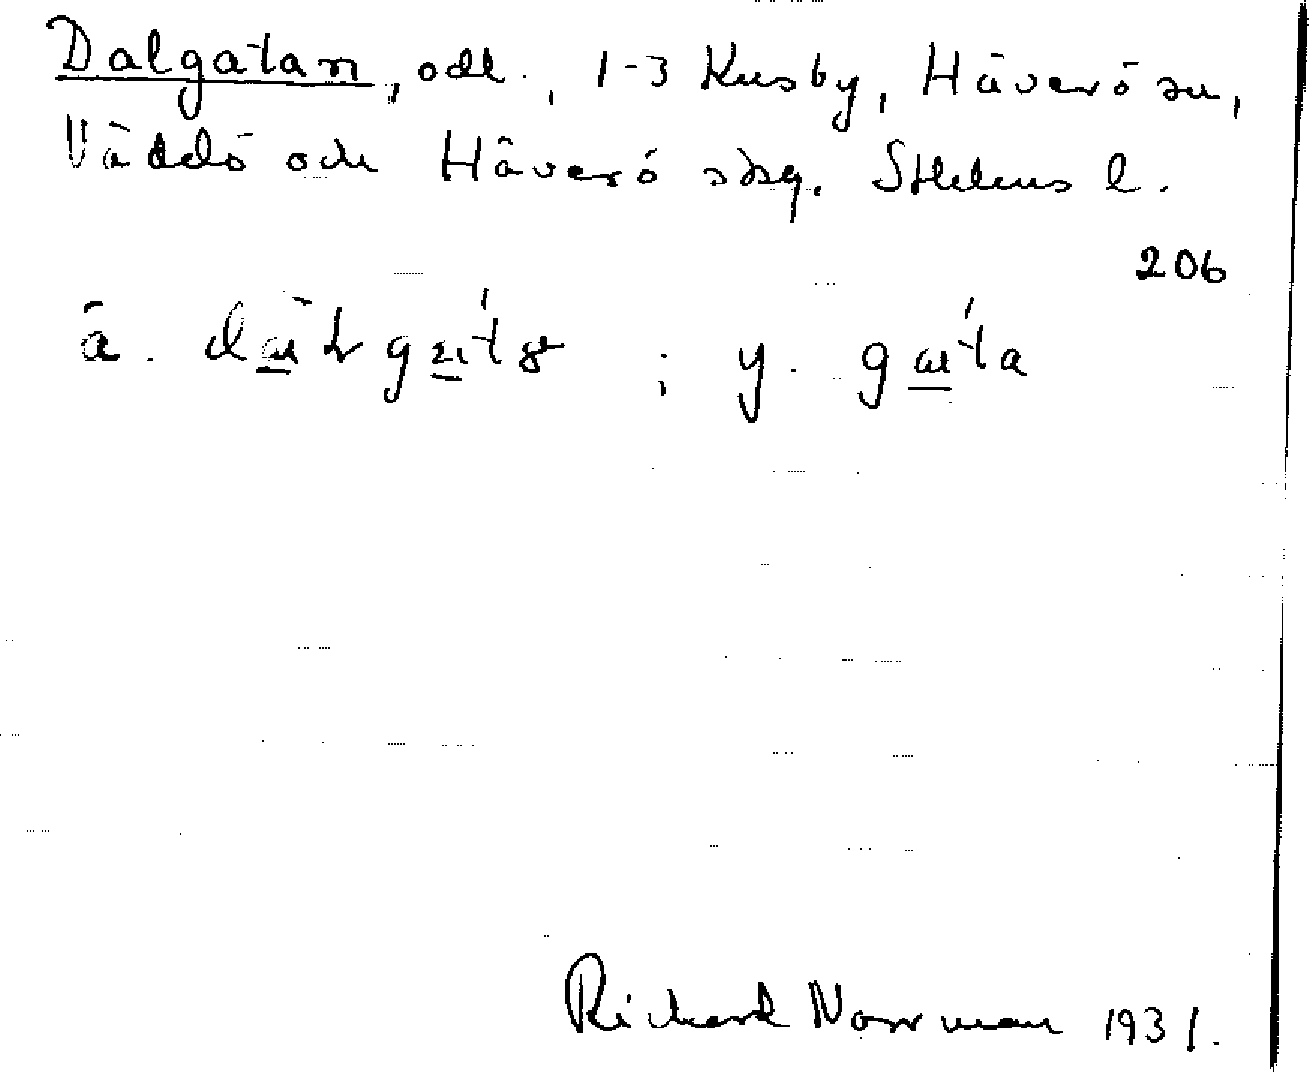 Dalgatan, odl., 1-3 Kusby, Häverö sn,
Väddö och Häverö sksg. Sthlms l.
206
ä. ; y.
Richard Norrman 1931.